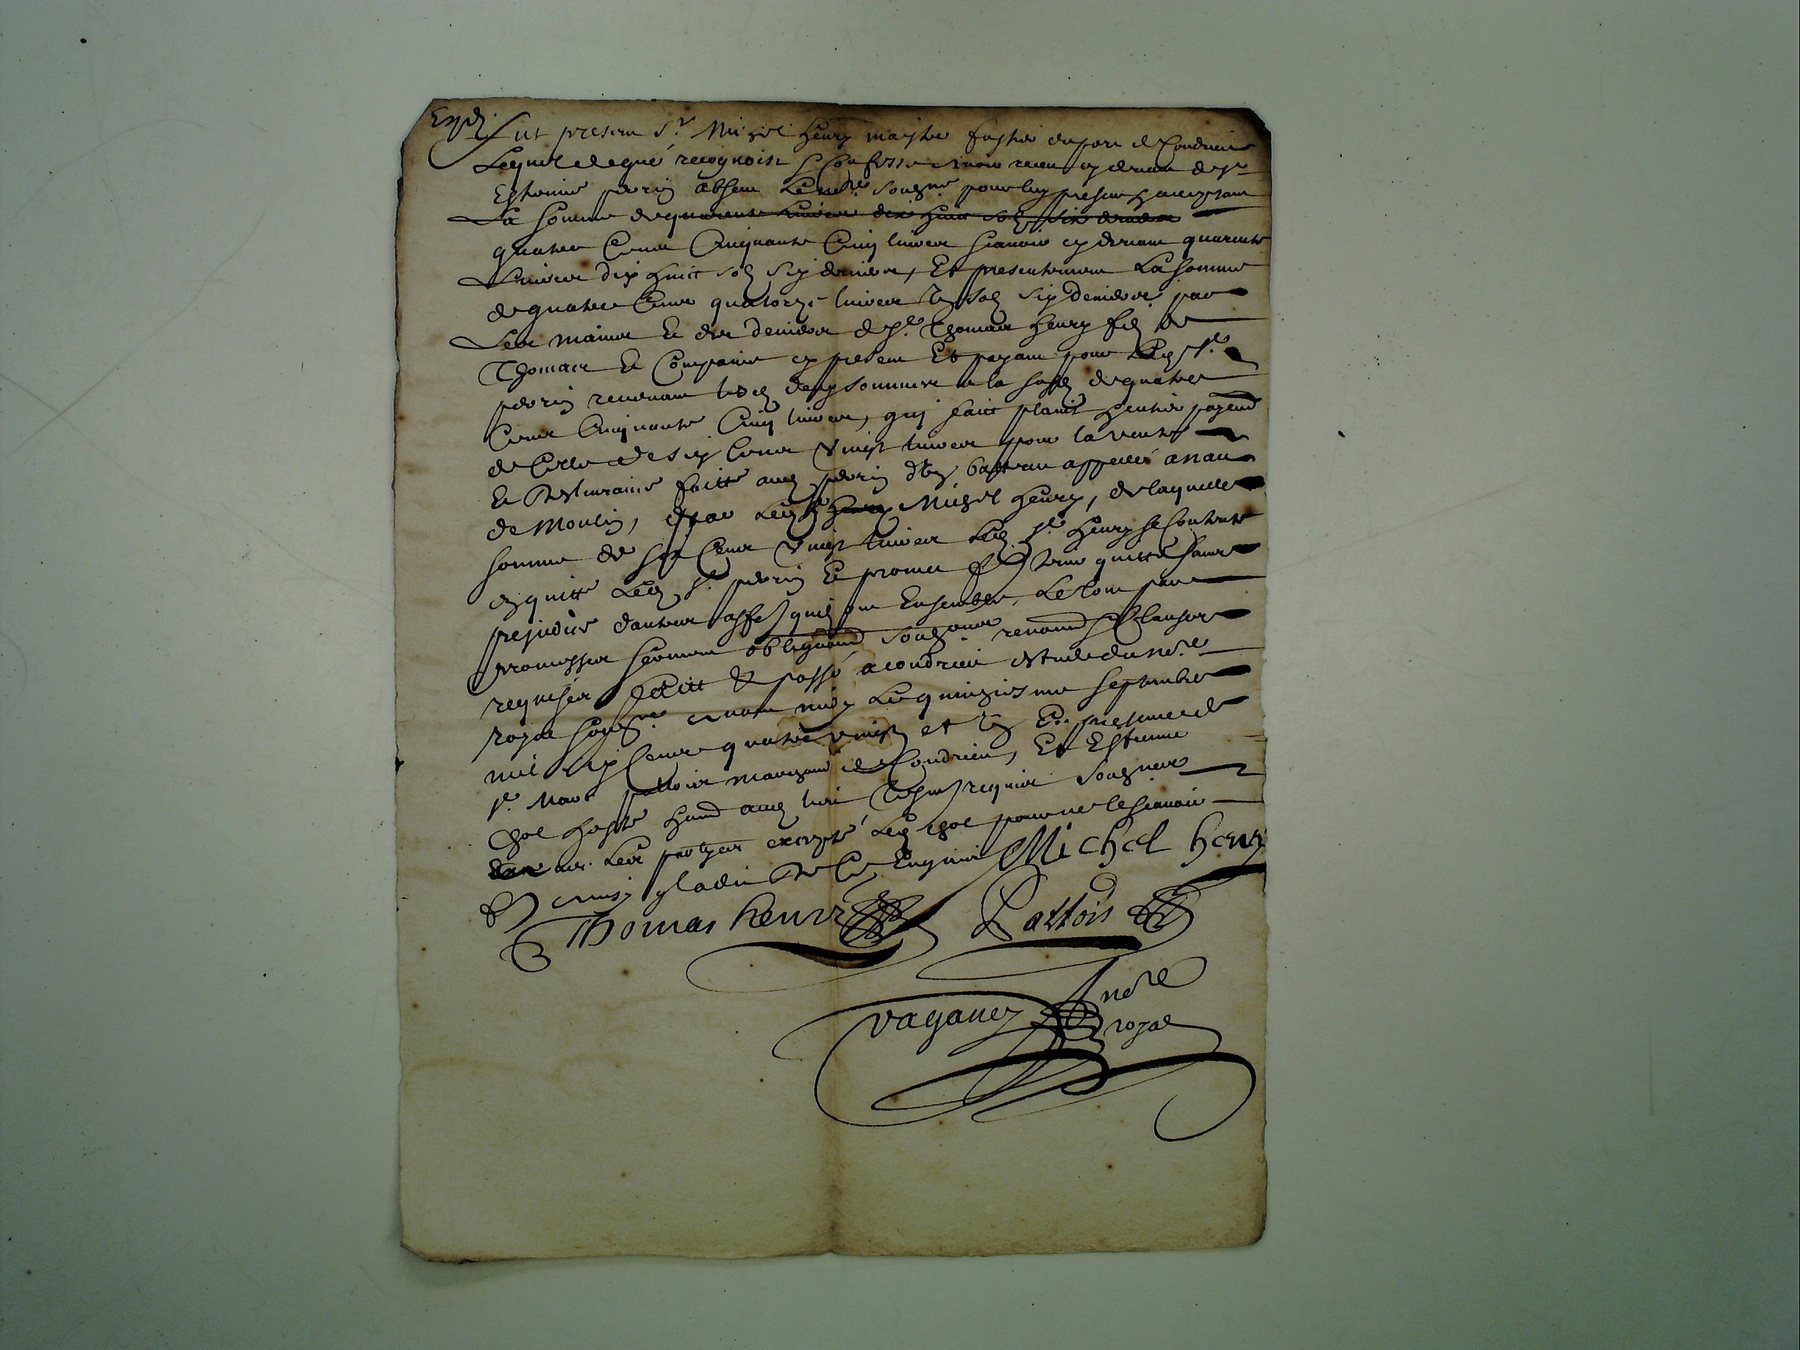 Expd.
fut presant Sr. Michel henry maistre fustier du port de Condrieu
Lequel de gré recognoist & Confesse avoir receu cy devant de Sr.
Estienne perrin absent Le nore. soubsné pour luy present & acceptant
La somme de quarente Livres dix huit sols six deniers
quatre Cent Cinquante Cinq livres scavoir cy devant quarente
Livres dix huict sols six deniers, Et presentement La somme
de quatre Cent quatorze livres un sol six deniers par
Les mains Et des deniers de Sr. Thomas henry fils de
Thomas Et Companie cy present Et payant pour Led. Sr.
perrin revenant lesd. deux sommes a la susd. de quatre
Cent Cinquante Cinq livres, qui faict plaint & entier payemt
de Celle de six Cent vingt livres pour la vente
Et faitte aud. perrin d'un batteau appellé a nau
de Moulin, par Led. Sr. henry Michel henry, de laquelle
somme de six Cent vingt livres Led. Sr. henry se Contente
en quitte Led. Sr. perrin Et promet tenir quitte sans
prejudice d'autres affes. quils ont Ensemble, Le tout par
promesses serment obligaons soubzons renonons & Clauses
requises faict Et passé a condrieu estude du nore.
royal soubsné. avant midy Le quinziesme septembre
mil six Cent quatre vingt et un En presence de
Sr. Marc pattois marchand de Condrieu, Et Estienne
Chol hoste hand aud. lieu tesms. requis soubsnes
avec Les partyes excepté Led. Chol pour ne le scavoir
de Ce Enquis
Michel henry
Thomas henry
Pattois
vaganey nore
royal